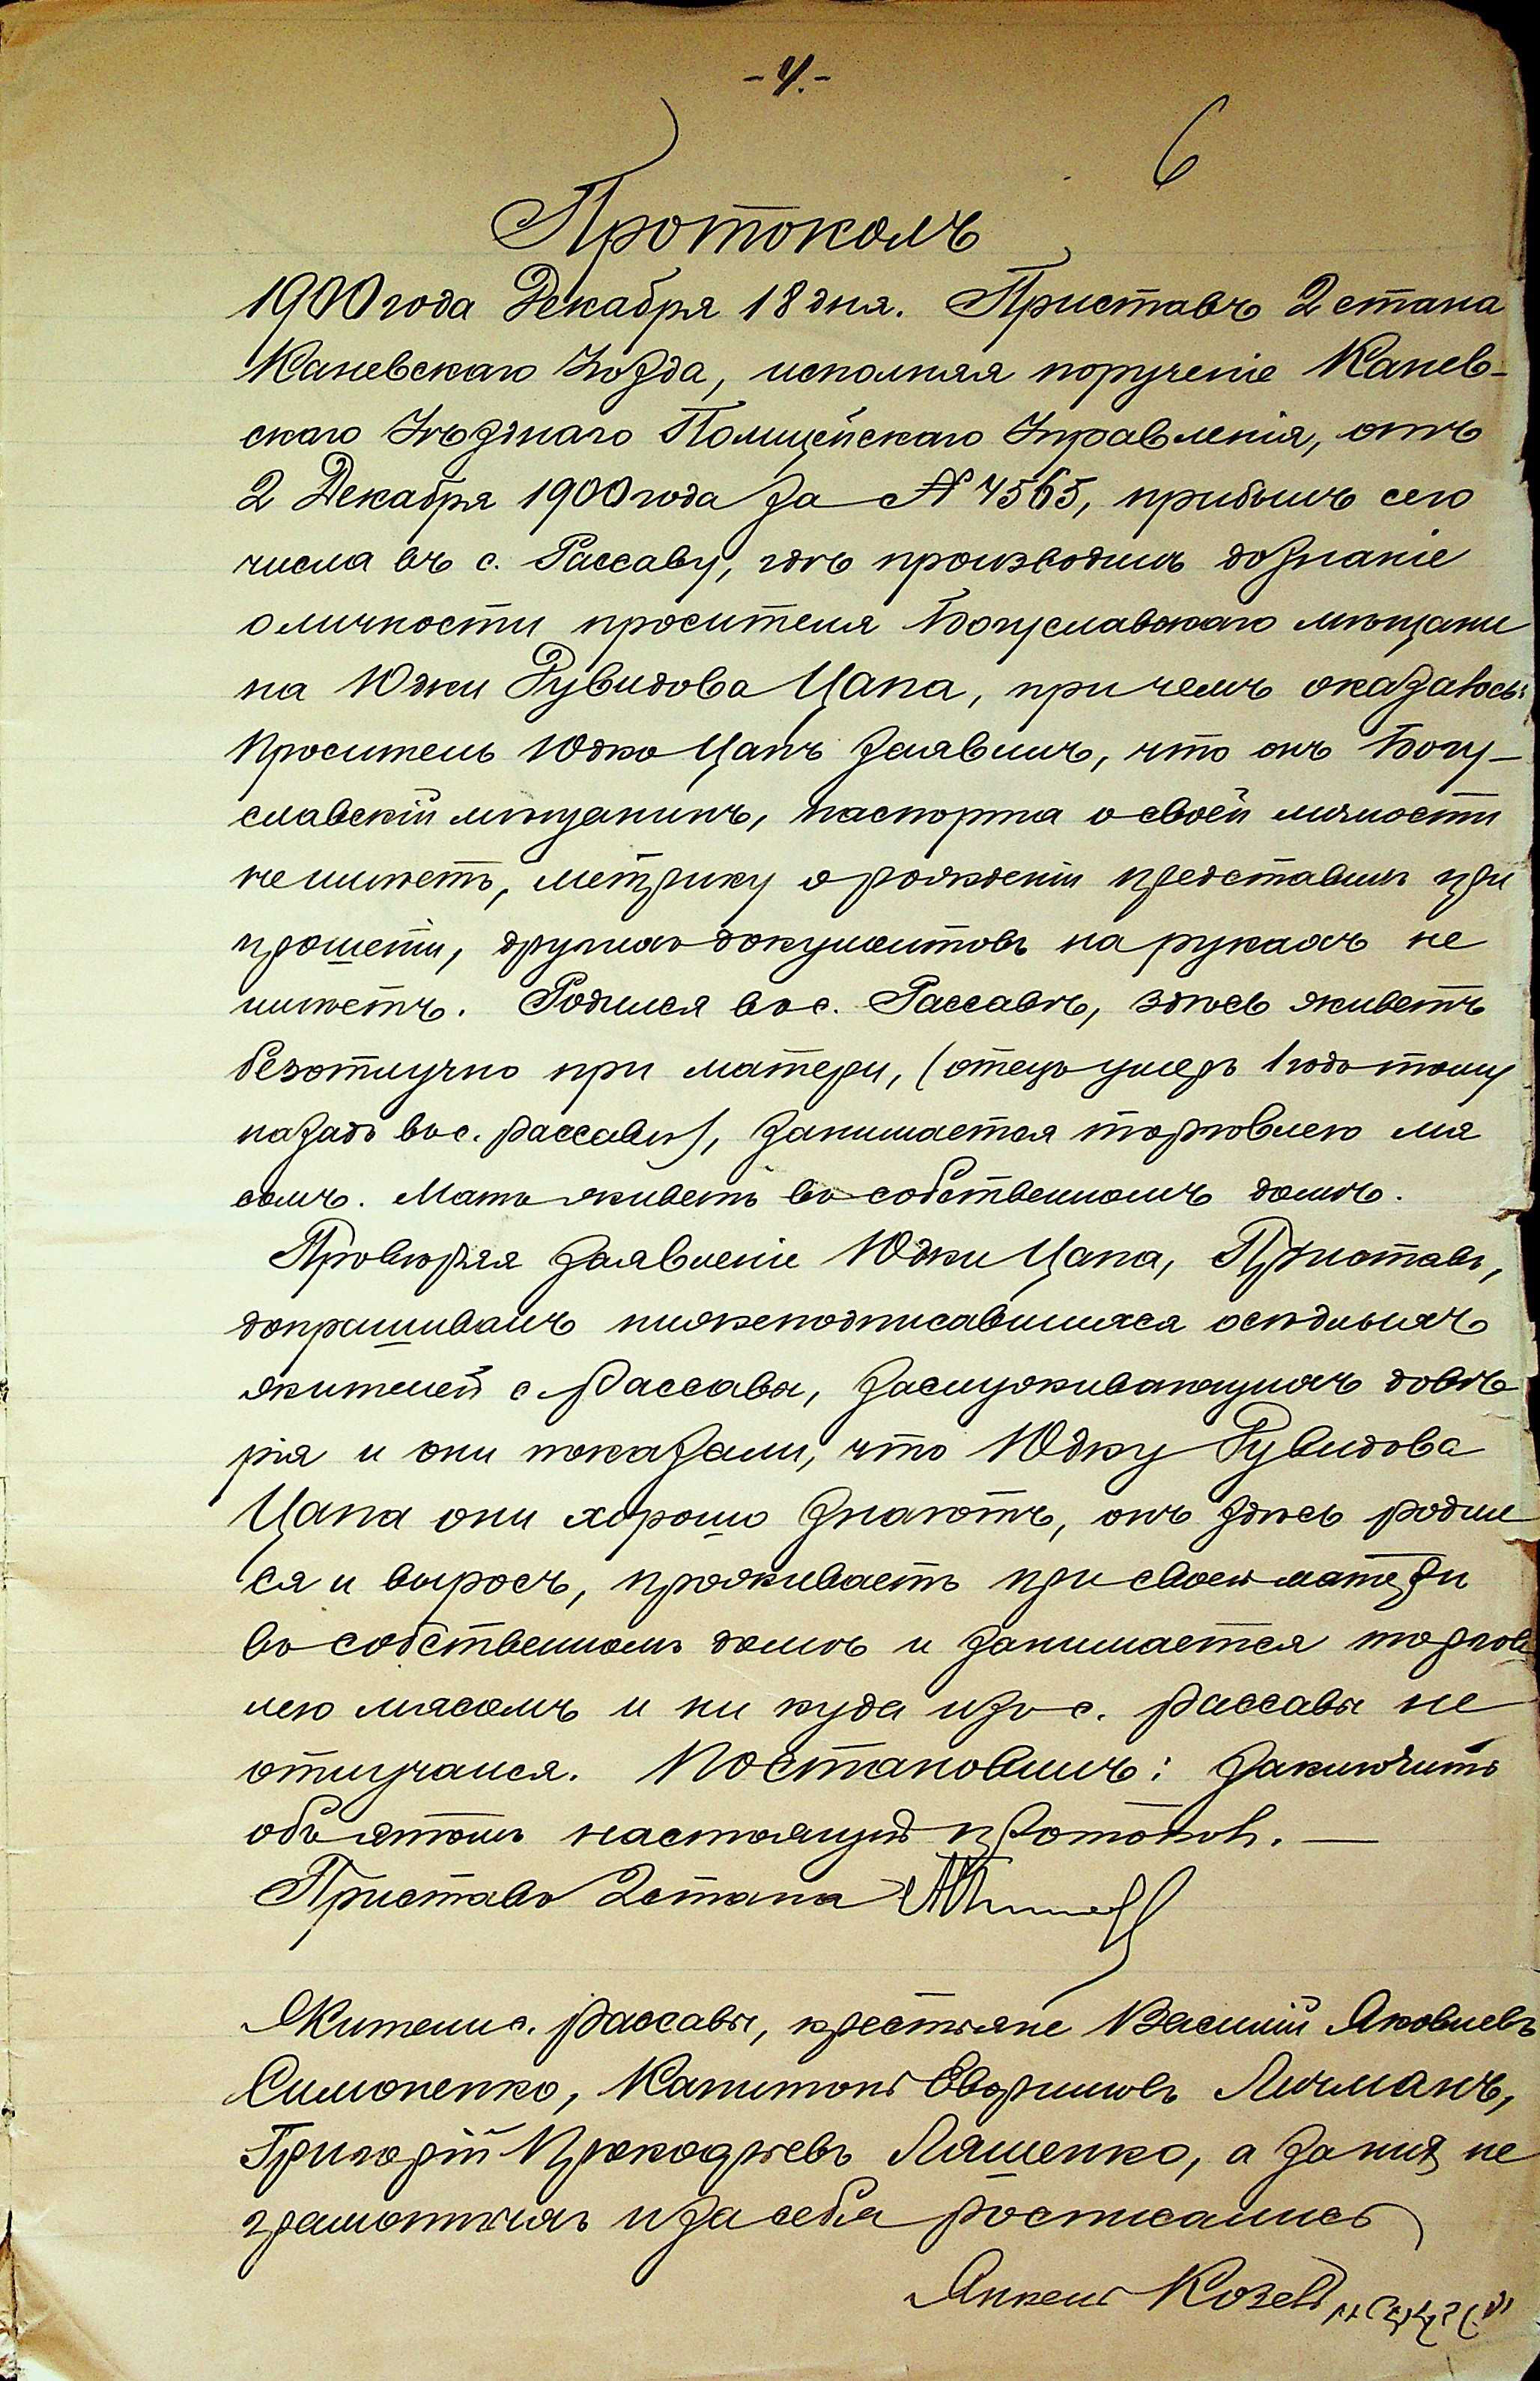 - 4. -
6
Протоколъ
1900 года Декабря 18 дня. Приставъ 2 стана
Каневскаго Уѣзда, исполняя порученіе Канев-
скаго Уѣзднаго Полицейскаго Управленія, отъ
2 Декабря 1900 года за № 4565, прибылъ сего
числа въ с. Рассаву, гдѣ производилъ дознаніе
о личности просителя Богуславскаго мѣщани
на Юдки Рувидова Цапа, при чемъ оказалось:
Проситель Юдко Цапъ заявилъ, что онъ Богу-
славскій мѣщанинъ, паспорта о своей личности
не имѣетъ, метрику о рожденіи представилъ при
прошеніи, другихъ документовъ на рукахъ не
имѣетъ. Родился въ с. Рассавѣ, здѣсь живетъ
безотлучно при матери, (отецъ умеръ 1 годъ тому
назадъ въ с. Рассавѣ), занимается торговлею мя
сомъ. Мать живетъ въ собственномъ домѣ.
Провѣряя заявленіе Юдки Цапа, Приставъ,
допрашивалъ нижеподписавшихся осѣдлыхъ
жителей с. Рассавы, заслуживающихъ довѣ
рія и они показали, что Юдку Рувидова
Цапа они хорошо знаютъ, онъ здѣсь родил
ся и выросъ, проживаетъ при своей матери
въ собственномъ домѣ и занимается торгов
лею мясомъ и ни куда изъ с. Рассавы не
отлучался. Постановилъ: заключить
объ этомъ настоящій протокол. —
Приставъ 2 стана
Жители с. Рассавы, крестьяне Василій Яковлевъ
Симоненко, Капитонъ Евфимовъ Личманъ,
Григорій Прокофьевъ Ляшенко, а за нихъ не
грамотныхъ и за себя росписались
Янкель Козел